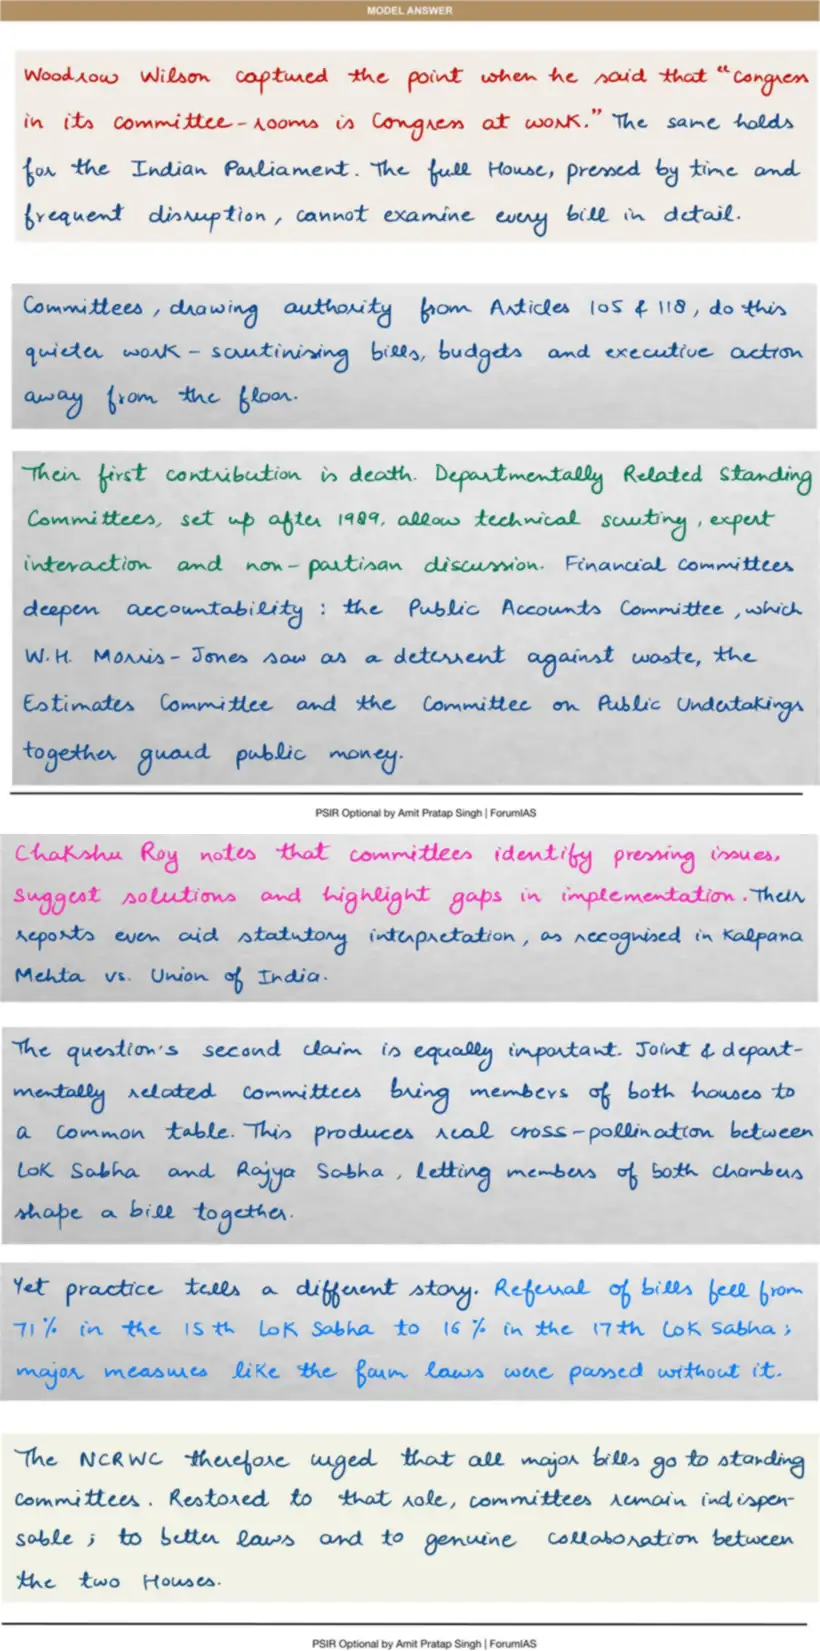 MODEL ANSWER
Woodrow Wilson captured the point when he said that "Congress
in its committee-rooms is Congress at work." The same holds
for the Indian Parliament. The full House, pressed by time and
frequent disruption, cannot examine every bill in detail.
Committees, drawing authority from Articles 105 & 118, do this
quieter work - scrutinising bills, budgets and executive action
away from the floor.
Their first contribution is death. Departmentally Related Standing
Committees, set up after 1989, allow technical scrutiny, expert
interaction and non-partisan discussion. Financial committees
deepen accountability: the Public Accounts Committee, which
W.H. Morris-Jones saw as a deterrent against waste, the
Estimates Committee and the Committee on Public Undertakings
together guard public money.
PSIR Optional by Amit Pratap Singh | ForumIAS
Chakshu Roy notes that committees identify pressing issues,
suggest solutions and highlight gaps in implementation. Their
reports even aid statutory interpretation, as recognised in Kalpana
Mehta vs. Union of India.
The question's second claim is equally important. Joint & depart-
mentally related committees bring members of both houses to
a common table. This produces real cross-pollination between
Lok Sabha and Rajya Sabha, letting members of both chambers
shape a bill together.
Yet practice tells a different story. Referral of bills fell from
71% in the 15th Lok Sabha to 16% in the 17th Lok Sabha;
major measures like the farm laws were passed without it.
The NCRWC therefore urged that all major bills go to standing
committees. Restored to that role, committees remain indispen-
sable; to better laws and to genuine collaboration between
the two Houses.
PSIR Optional by Amit Pratap Singh | ForumIAS